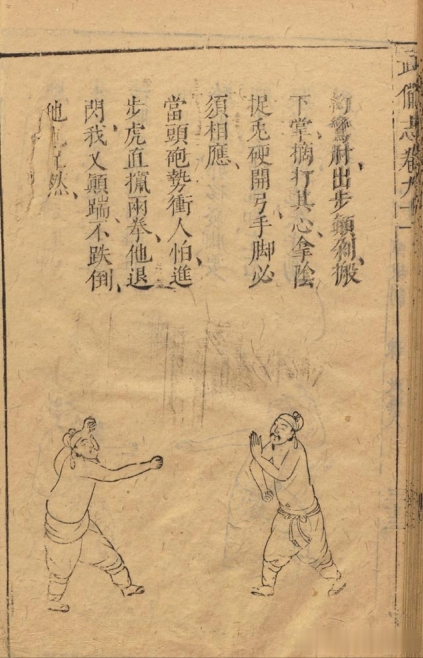 武備志卷九十一
拗鸞肘出步顛剁、搬
下掌、摘打其心、拿陰
捉兎硬開弓、手脚必
須相應、
當頭砲勢衝人怕、進
步虎直攛兩拳、他退
閃我又顛踹、不跌倒、
他也忙然、